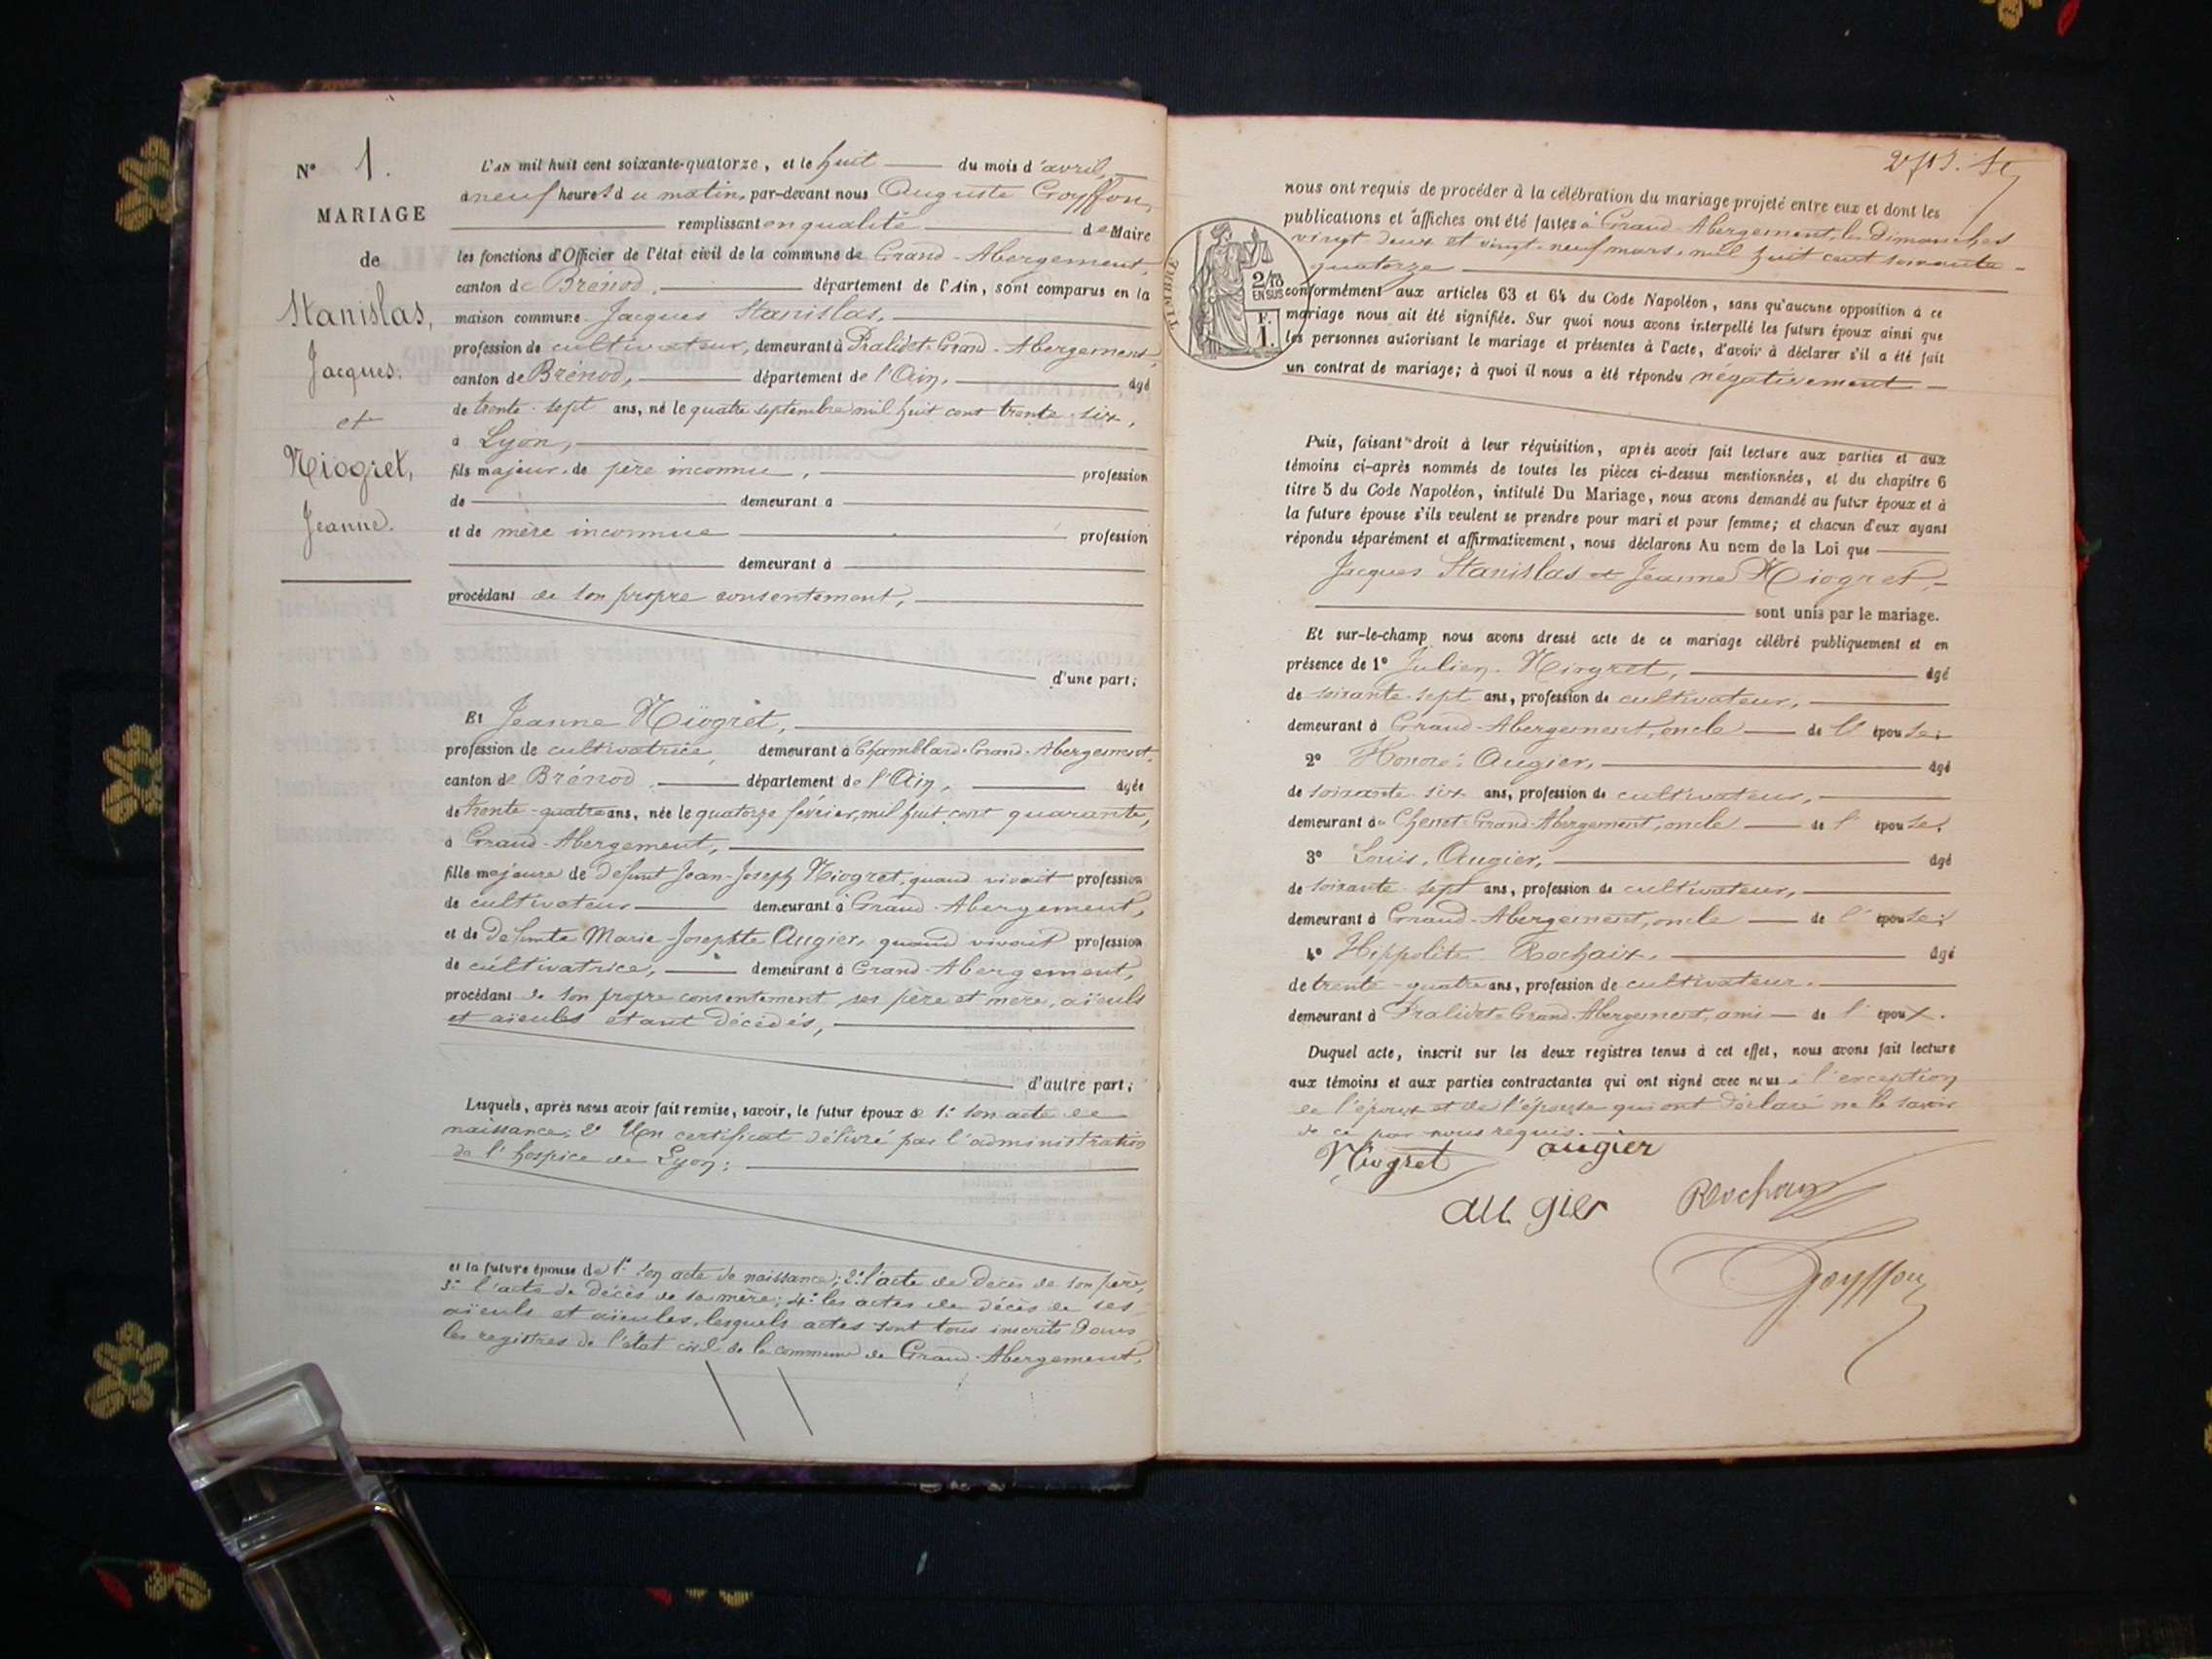 N° 1.
MARIAGE
de
Stanislas,
Jacques.
et
Niogret,
Jeanne.
L'AN mil huit cent soixante-quatorze, et le huit du mois d'avril,
à neuf heures du matin, par-devant nous Auguste Goyffon,
remplissant en qualité de Maire
les fonctions d'Officier de l'état civil de la commune de Grand-Abergement,
canton de Brénod, département de l'Ain, sont comparus en la
maison commune Jacques Stanislas,
profession de cultivateur, demeurant à Pralidet-Grand-Abergement,
canton de Brénod, département de l'Ain, âgé
de trente-sept ans, né le quatre septembre mil huit cent trente-six,
à Lyon,
fils majeur de père inconnu, profession
de demeurant à
et de mère inconnue profession
demeurant à
procédant de son propre consentement,
d'une part;
Et Jeanne Niogret,
profession de cultivatrice, demeurant à Chamblard-Grand-Abergement,
canton de Brénod, département de l'Ain, âgée
de trente-quatre ans, née le quatorze février, mil huit cent quarante,
à Grand-Abergement,
fille majeure de défunt Jean-Joseph Niogret, quand vivait profession
de cultivateur demeurant à Grand-Abergement,
et de défunte Marie-Josephte Augier, quand vivait profession
de cultivatrice, demeurant à Grand-Abergement,
procédant de son propre consentement, ses père et mère, aïeuls
et aïeules étant décédés,
d'autre part;
Lesquels, après nous avoir fait remise, savoir, le futur époux de 1° son acte de
naissance; 2° Un certificat délivré par l'administration
de l'hospice de Lyon;
et la future épouse de 1° son acte de naissance; 2° l'acte de décès de son père,
3° l'acte de décès de sa mère; 4° les actes de décès de ses
aïeuls et aïeules, lesquels actes sont tous inscrits dans
les registres de l'état civil de la commune de Grand-Abergement,
TIMBRE
2/10
EN SUS
F.
1.
nous ont requis de procéder à la célébration du mariage projeté entre eux et dont les
publications et affiches ont été faites à Grand-Abergement, les Dimanches
vingt-deux et vingt-neuf mars, mil huit cent soixante-
quatorze
conformément aux articles 63 et 64 du Code Napoléon, sans qu'aucune opposition à ce
mariage nous ait été signifiée. Sur quoi nous avons interpellé les futurs époux ainsi que
les personnes autorisant le mariage et présentes à l'acte, d'avoir à déclarer s'il a été fait
un contrat de mariage; à quoi il nous a été répondu négativement
Puis, faisant droit à leur réquisition, après avoir fait lecture aux parties et aux
témoins ci-après nommés de toutes les pièces ci-dessus mentionnées, et du chapitre 6
titre 5 du Code Napoléon, intitulé Du Mariage, nous avons demandé au futur époux et à
la future épouse s'ils veulent se prendre pour mari et pour femme; et chacun d'eux ayant
répondu séparément et affirmativement, nous déclarons Au nom de la Loi que
Jacques Stanislas et Jeanne Niogret,
sont unis par le mariage.
Et sur-le-champ nous avons dressé acte de ce mariage célébré publiquement et en
présence de 1° Julien Niogret, âgé
de soixante-sept ans, profession de cultivateur,
demeurant à Grand-Abergement, oncle de l'épouse;
2° Honoré Augier, âgé
de soixante-six ans, profession de cultivateur,
demeurant à Grand-Abergement, oncle de l'épouse;
3° Louis Augier, âgé
de soixante-sept ans, profession de cultivateur,
demeurant à Grand-Abergement, oncle de l'épouse;
4° Hippolite Rochaix, âgé
de trente-quatre ans, profession de cultivateur.
demeurant à Pralidet-Grand-Abergement, ami de l'époux.
Duquel acte, inscrit sur les deux registres tenus à cet effet, nous avons fait lecture
aux témoins et aux parties contractantes qui ont signé avec nous à l'exception
de l'époux et de l'épouse qui ont déclaré ne le savoir
de ce par nous requis.
Niogret augier
augier Rochaix
Goyffon